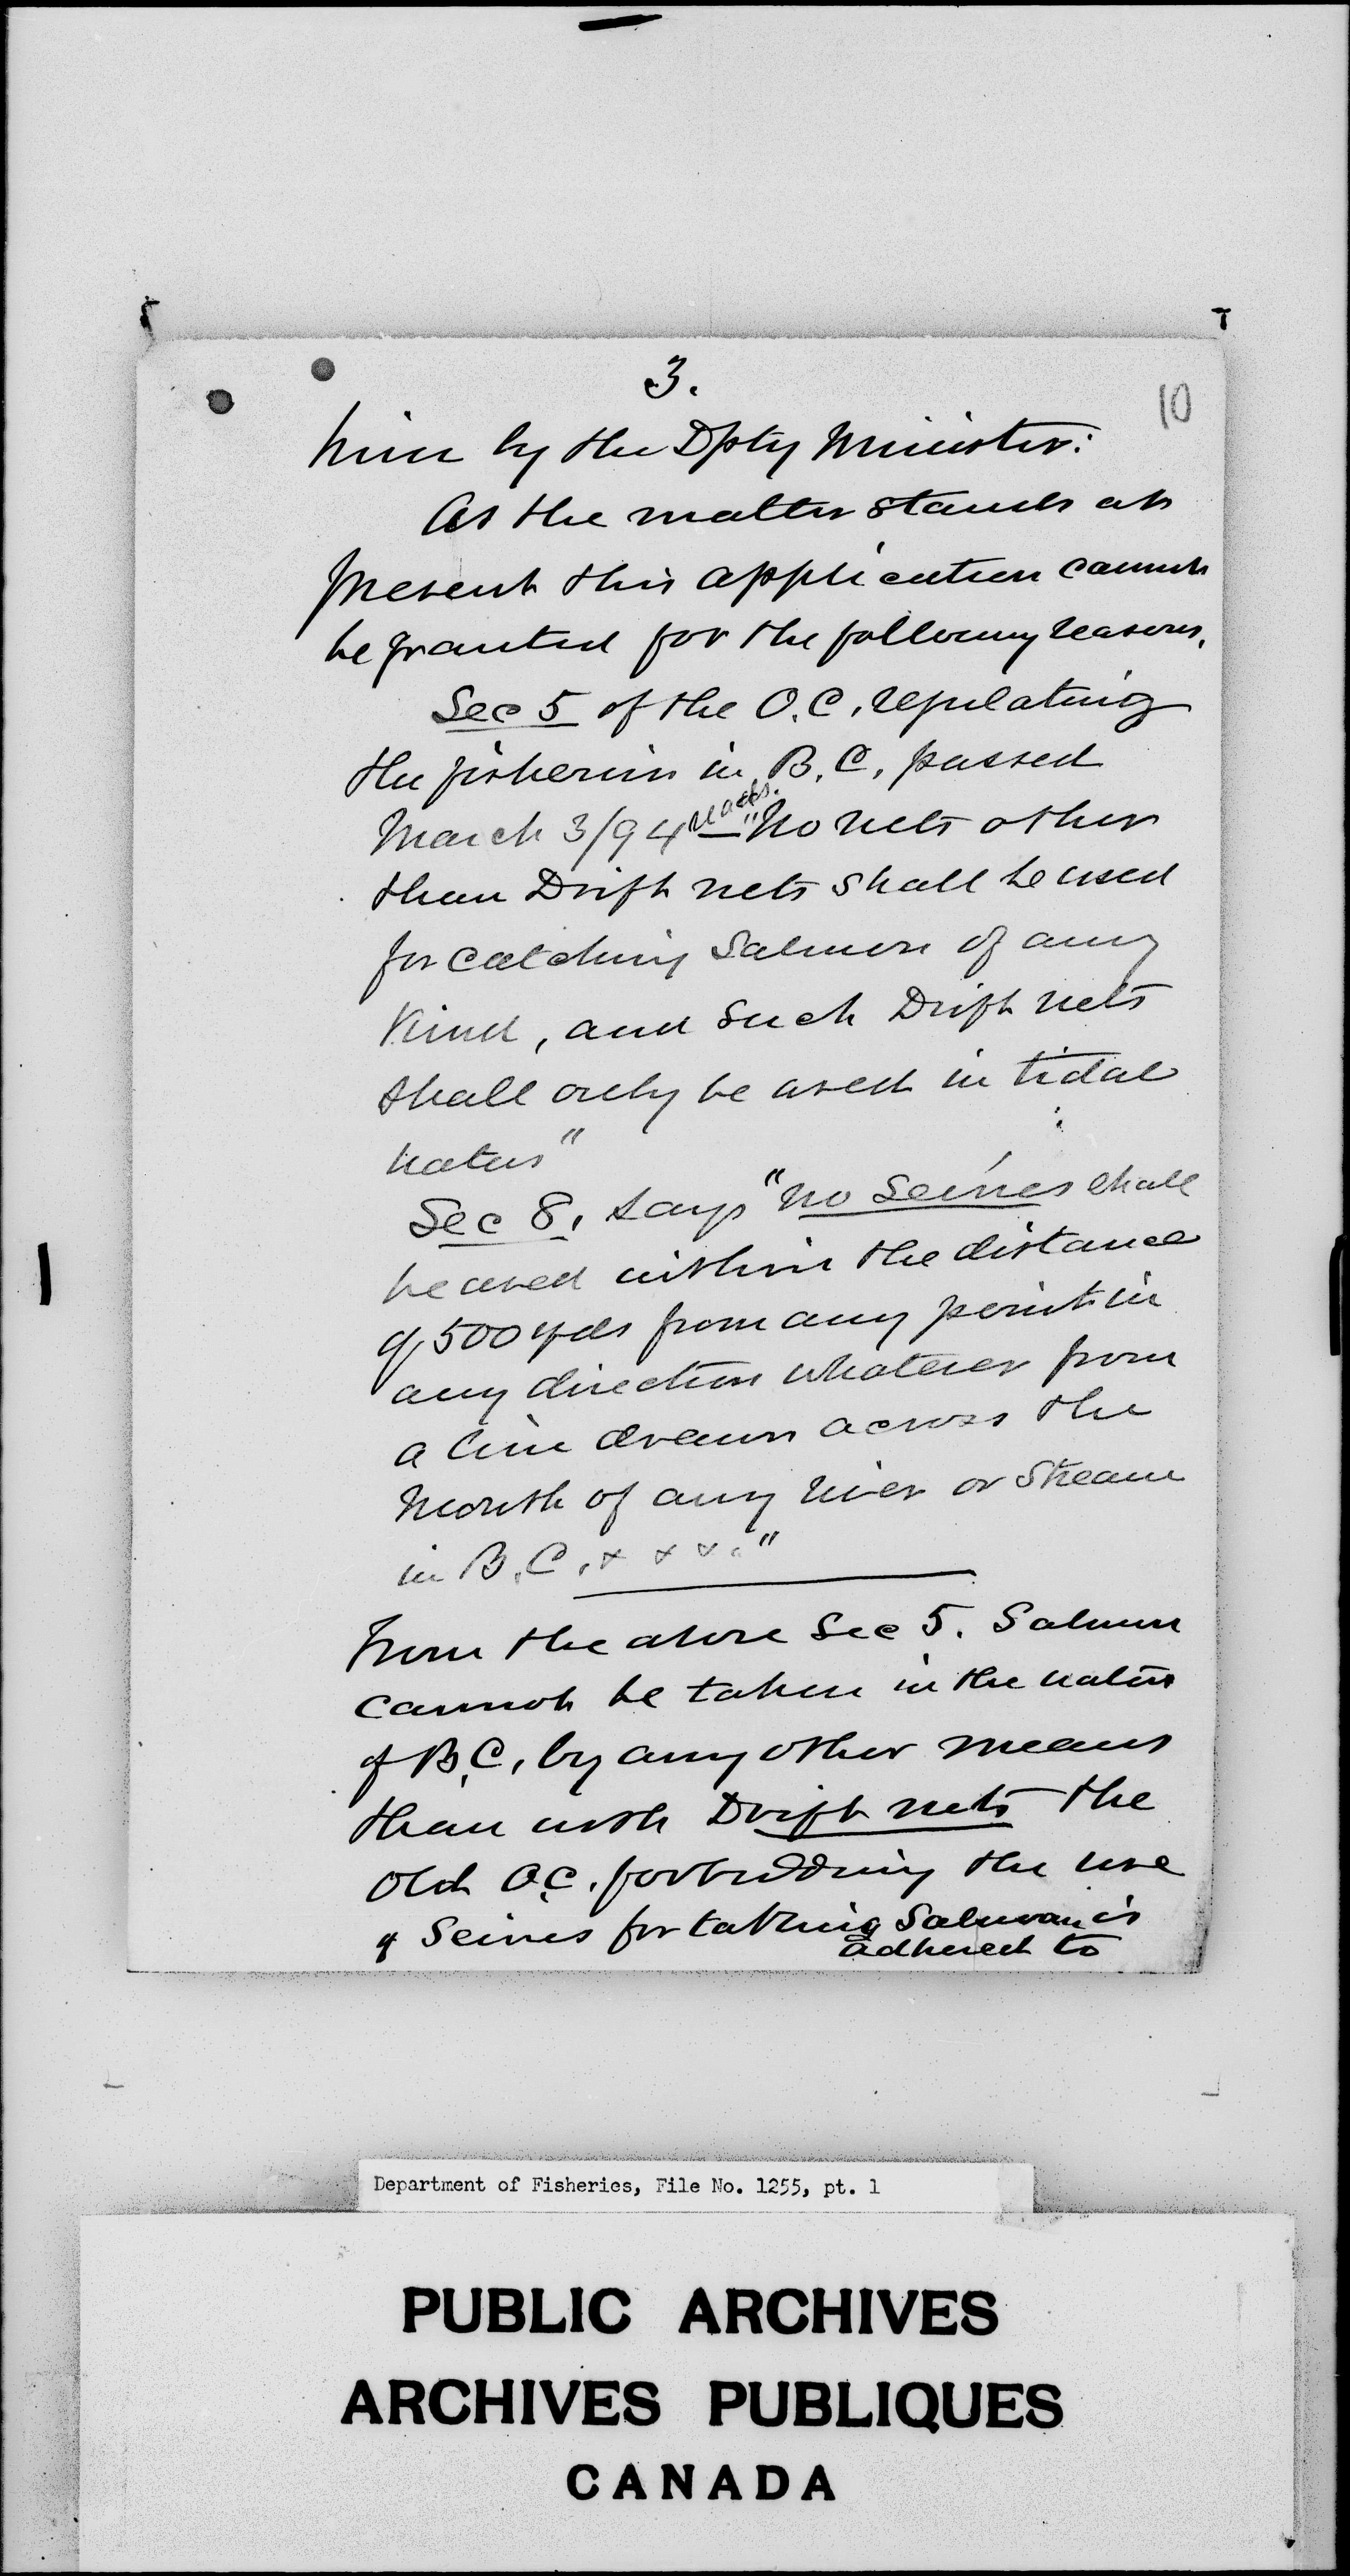 3.
10
him by the Dpty Minister:
As the matter stands at
present this application cannot
be granted for the following reasons.
Sec 5 of the O.C. regulating
the fisheries in B.C. passed
March 3/94 reads. "No nets other
than Drift nets shall be used
for catching Salmon of any
Kind, and such Drift nets
shall only be used in tidal
waters"
Sec 8, says "no Seines shall
be used within the distance
of 500 yds from any point in
any direction whatever from
a line drawn across the
mouth of any river or Stream
in B.C. x x x."
From the above Sec 5. Salmon
cannot be taken in the waters
of B.C, by any other means
than with Drift nets the
old O.C. forbidding the use
of Seines for taking Salmon is
adhered to
Department of Fisheries, File No. 1255, pt. 1
PUBLIC ARCHIVES
ARCHIVES PUBLIQUES
CANADA